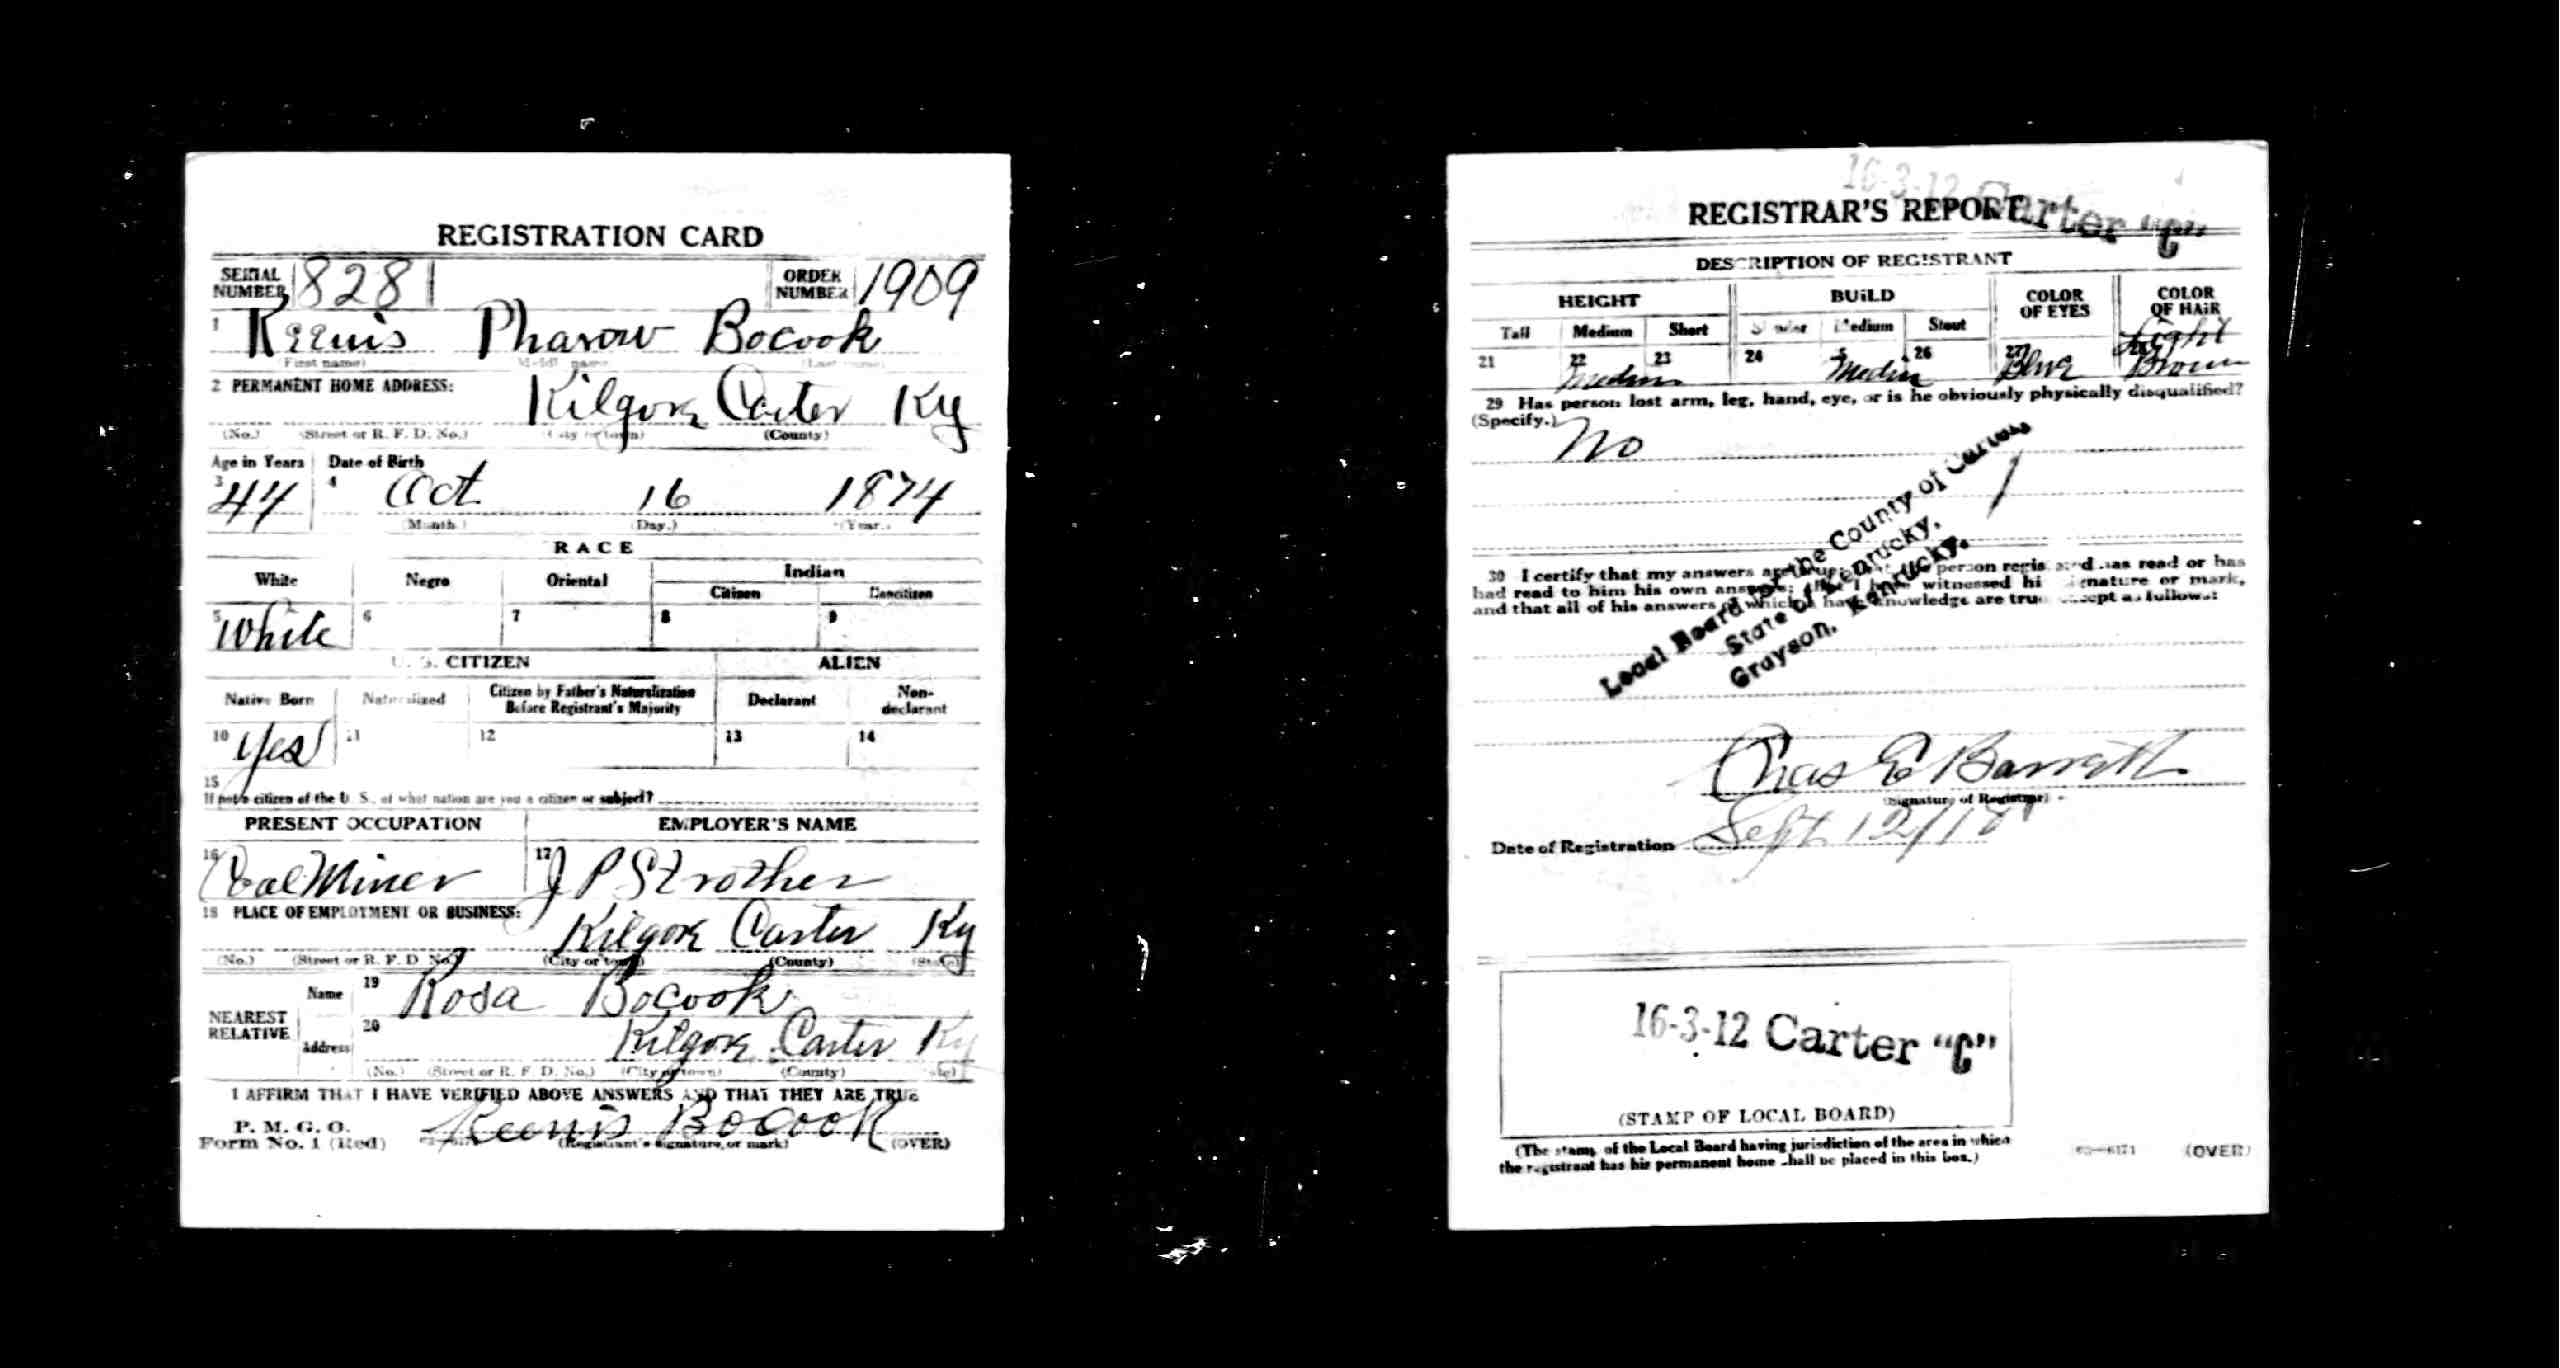 REGISTRATION CARD
SERIAL NUMBER 828 ORDER NUMBER 1909
1 Pharow Bocook
(First name) (Middle name) (Last name)
2 PERMANENT HOME ADDRESS: Kilgore Carter Ky
(No.) (Street or R. F. D. No.) (City or town) (County)
Age in Years Date of Birth
3 44 4 Oct 16 1874
(Month.) (Day.) (Year.)
RACE
White Negro Oriental Indian
Citizen Noncitizen
5 White 6 7 8 9
U. S. CITIZEN ALIEN
Native Born Naturalized Citizen by Father's Naturalization Before Registrant's Majority Declarant Non-declarant
10 Yes 11 12 13 14
15
If not a citizen of the U. S., of what nation are you a citizen or subject?
PRESENT OCCUPATION EMPLOYER'S NAME
16 Coal Miner 17 J P Strother
18 PLACE OF EMPLOYMENT OR BUSINESS:
Kilgore Carter Ky
(No.) (Street or R. F. D. No.) (City or town) (County) (State)
NEAREST RELATIVE Name 19 Rosa Bocook
Address 20 Kilgore Carter Ky
(No.) (Street or R. F. D. No.) (City or town) (County) (State)
I AFFIRM THAT I HAVE VERIFIED ABOVE ANSWERS AND THAT THEY ARE TRUE
P. M. G. O.
Form No. 1 (Red) Bocook
(Registrant's signature or mark) (OVER)
16-3-12 Carter "C"
REGISTRAR'S REPORT
DESCRIPTION OF REGISTRANT
HEIGHT BUILD COLOR OF EYES COLOR OF HAIR
Tall Medium Short Slender Medium Stout
21 22 Medium 23 24 25 Medium 26 27 Blue 28 Light Brown
29 Has person lost arm, leg, hand, eye, or is he obviously physically disqualified?
(Specify.) No
Local Board for the County of Carter
State of Kentucky,
Grayson, Kentucky.
30 I certify that my answers are true; that the person registered has read or has
had read to him his own answers; that I have witnessed his signature or mark,
and that all of his answers of which I have knowledge are true, except as follows:
Chas E Barrett
(Signature of Registrar)
Date of Registration Sept 12/18
16-3-12 Carter "C"
(STAMP OF LOCAL BOARD)
(The stamp of the Local Board having jurisdiction of the area in which
the registrant has his permanent home shall be placed in this box.)
03—6171 (OVER)